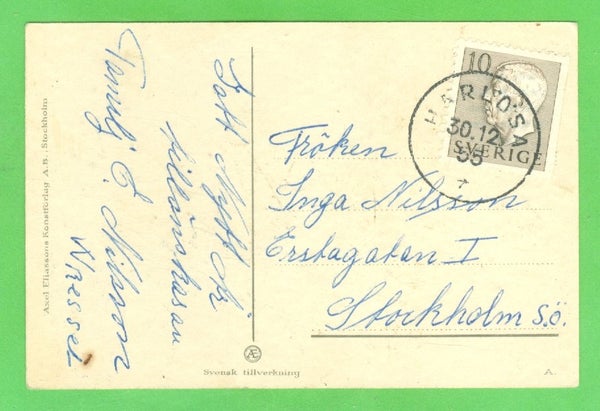 Gott Nytt År
tillönskasav
Familj E. Nilsson
Axel Eliassons Konstförlag A.B., Stockholm
10
SVERIGE
30.12.
55
Fröken
Inga Nilsson
Erstagatan 1
Stockholm Sö.
Æ
Svensk tillverkning
A.